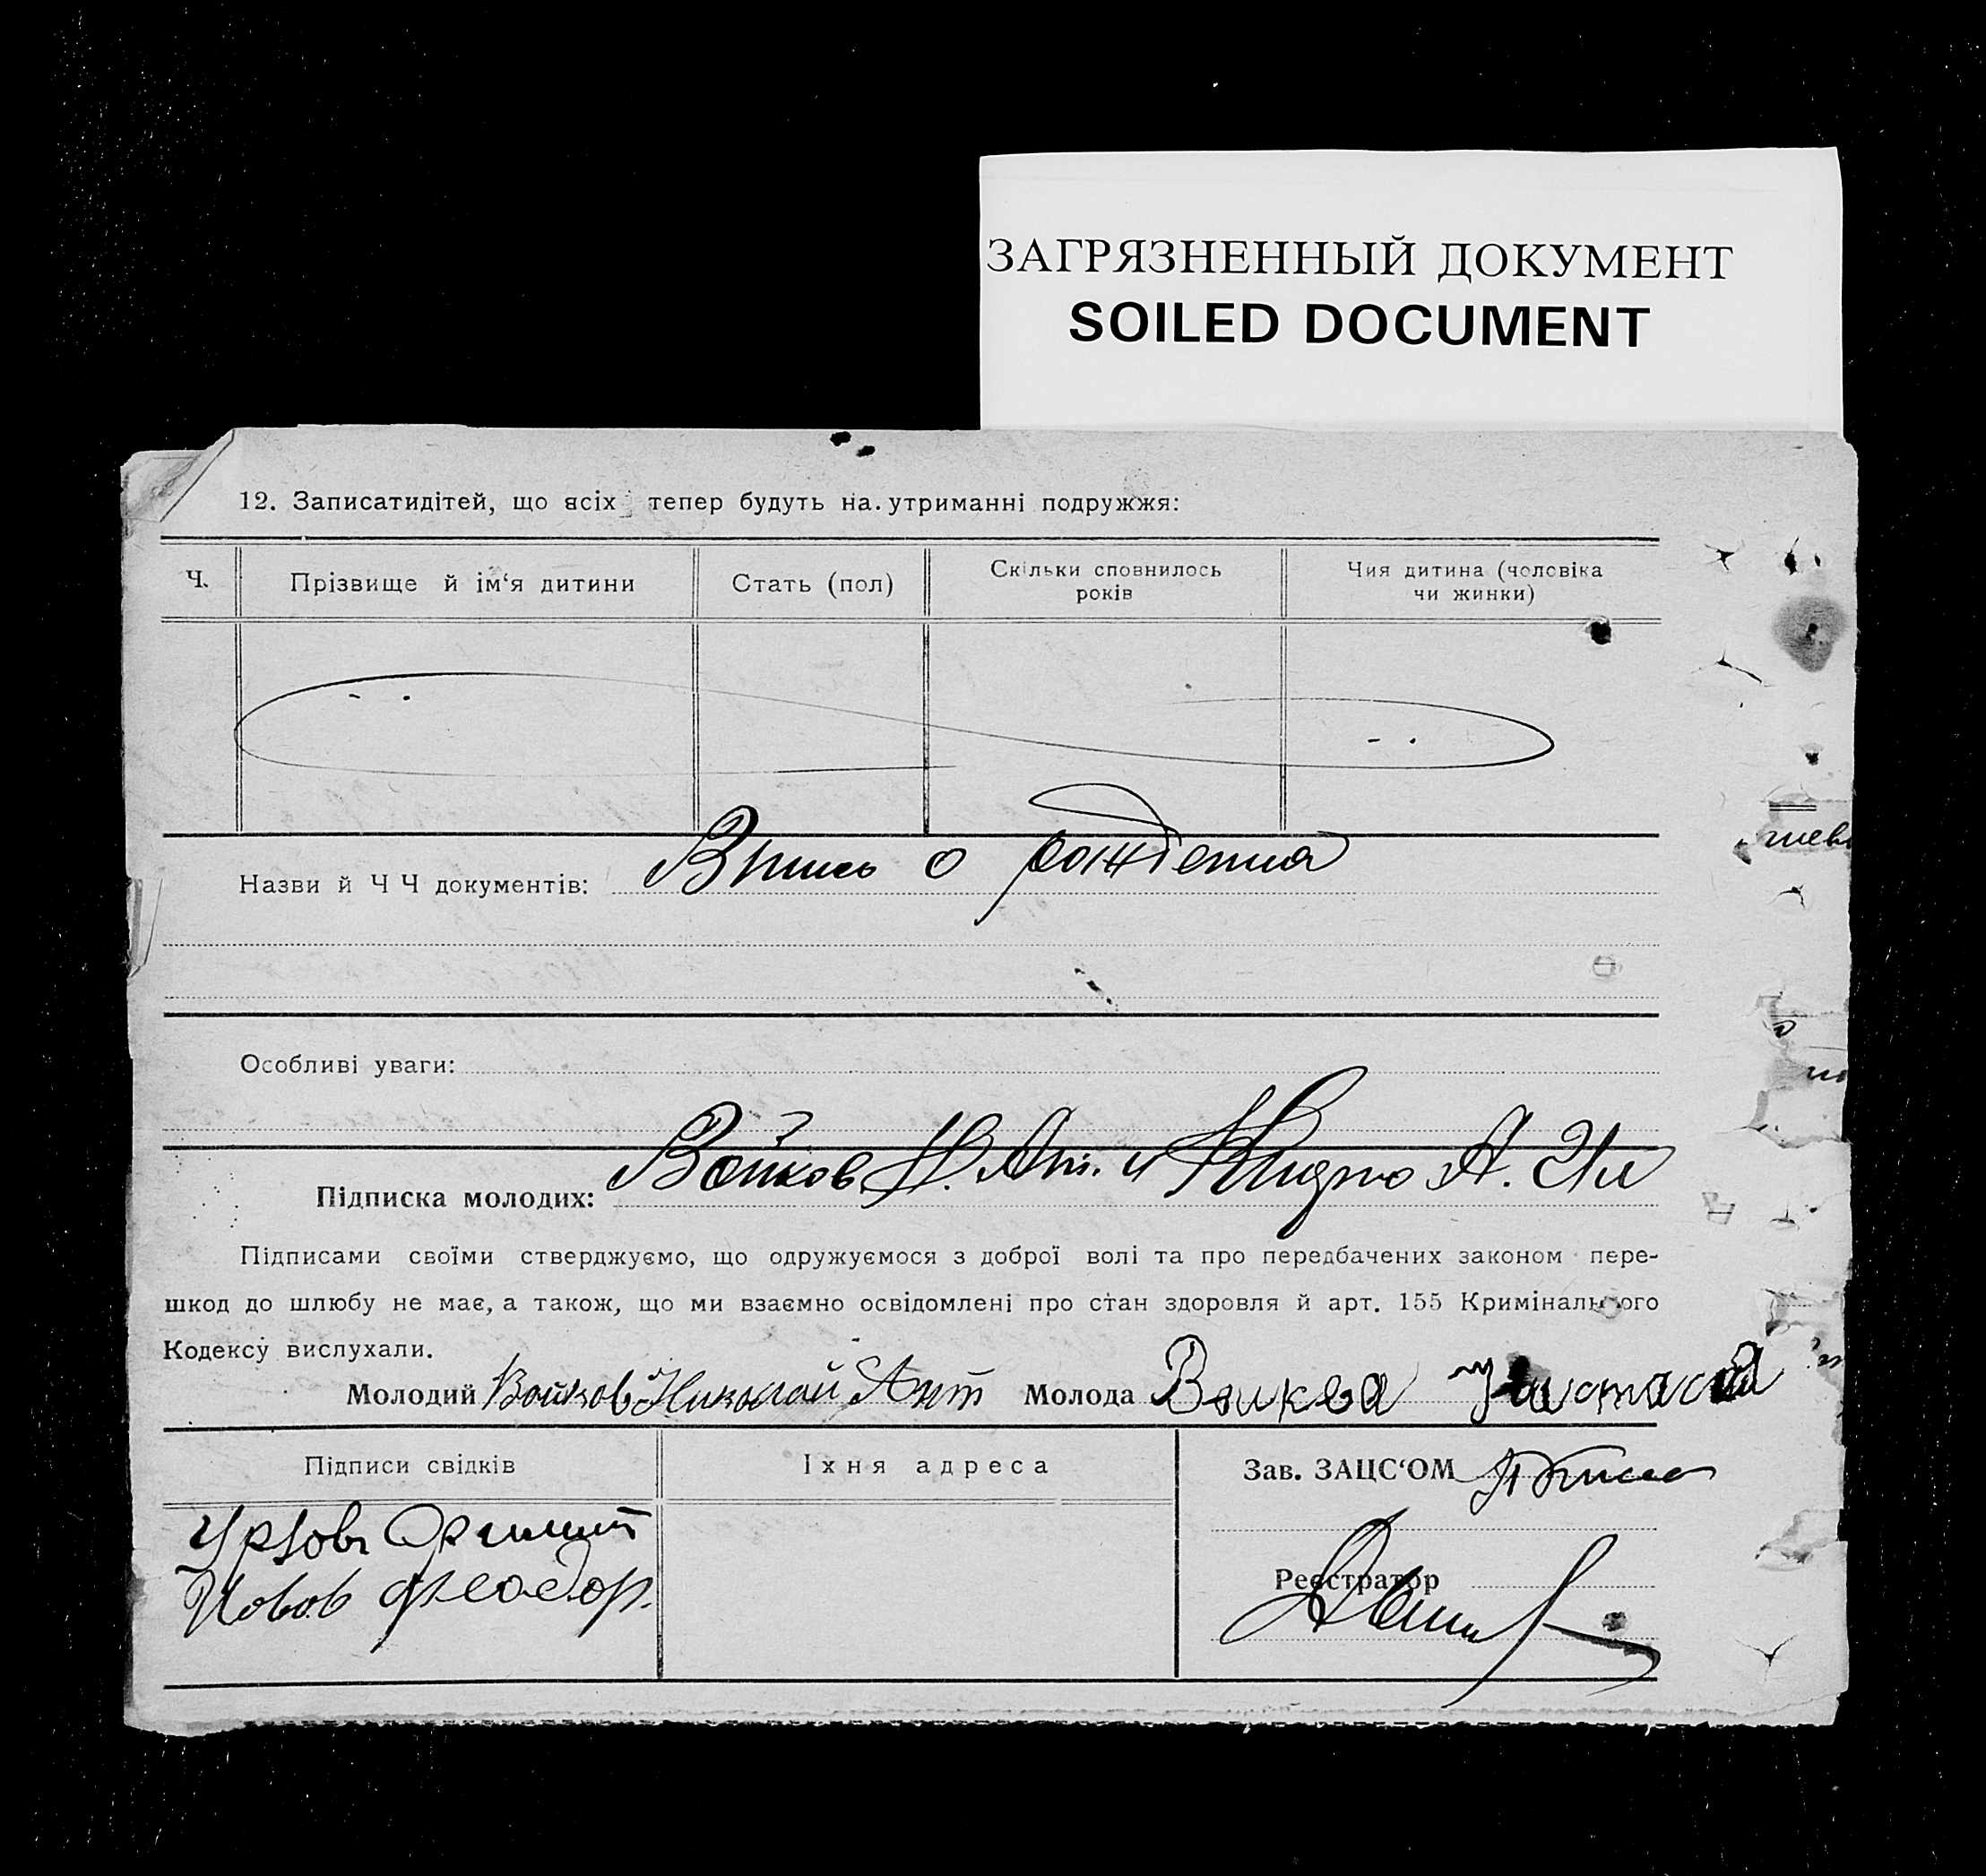 ЗАГРЯЗНЕННЫЙ ДОКУМЕНТ
SOILED DOCUMENT
12. Записатидітей, що всіх тепер будуть на утриманні подружжя:
Ч. Прізвище й ім‘я дитини Стать (пол) Скільки сповнилось років Чия дитина (чоловіка чи жинки)
Назви й Ч Ч документів: Впись о рождения
Особливі уваги:
Підписка молодих: Войков Н. Ант. и А.
Підписами своїми стверджуємо, що одружуємося з доброї волі та про передбачених законом пере-
шкод до шлюбу не має, а також, що ми взаємно освідомлені про стан здоровля й арт. 155 Кримінального
Кодексу вислухали.
Молодий Войков Николай Ант Молода
Підписи свідків Їхня адреса Зав. ЗАЦС‘ОМ
Реєстратор
Феодор.